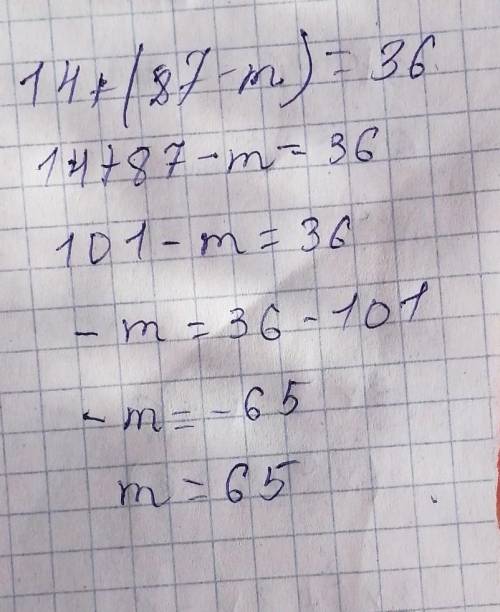 14+(87-m)=36
14+87-m=36
101-m=36
-m=36-101
-m=-65
m=65